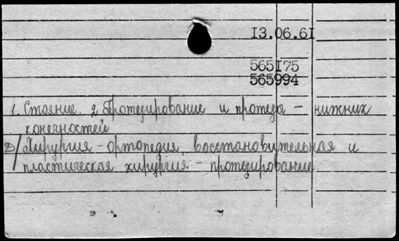 13.06.61
565175
565994
1. Стояние. 2. Протезирование и протезы - нижних
конечностей
Д/Хирургия - ортопедия, восстановительная и
пластическая хирургия - протезирование